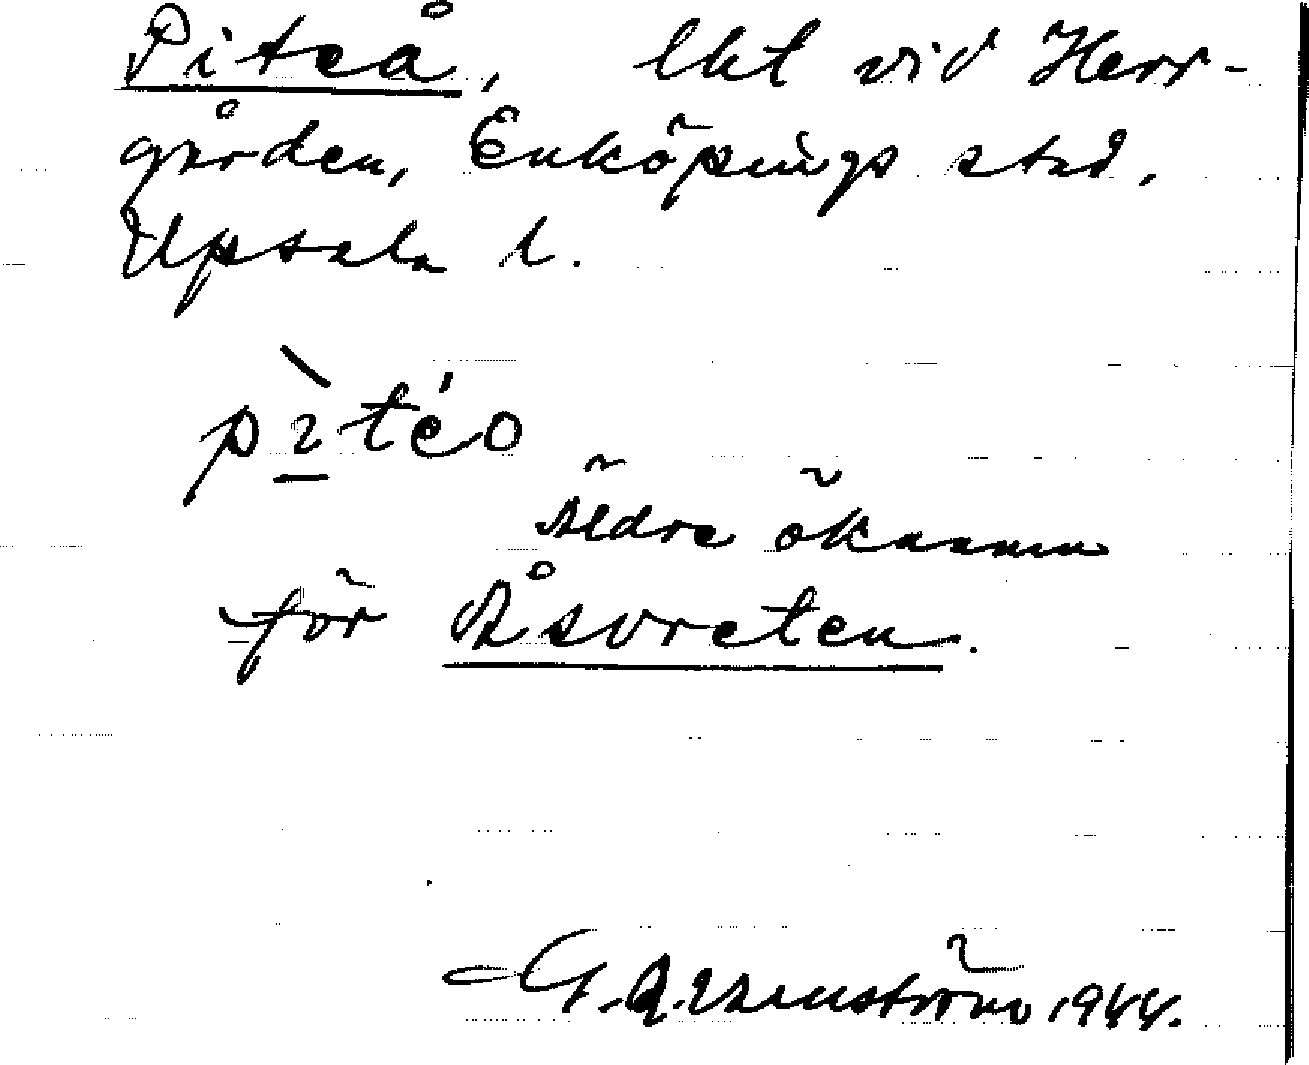 Piteå, lht vid Herr-
gården, Enköpings stad.
Upsala l.
pìtéo
Äldre öknamn
för Åsvreten.
G. A. 1944.